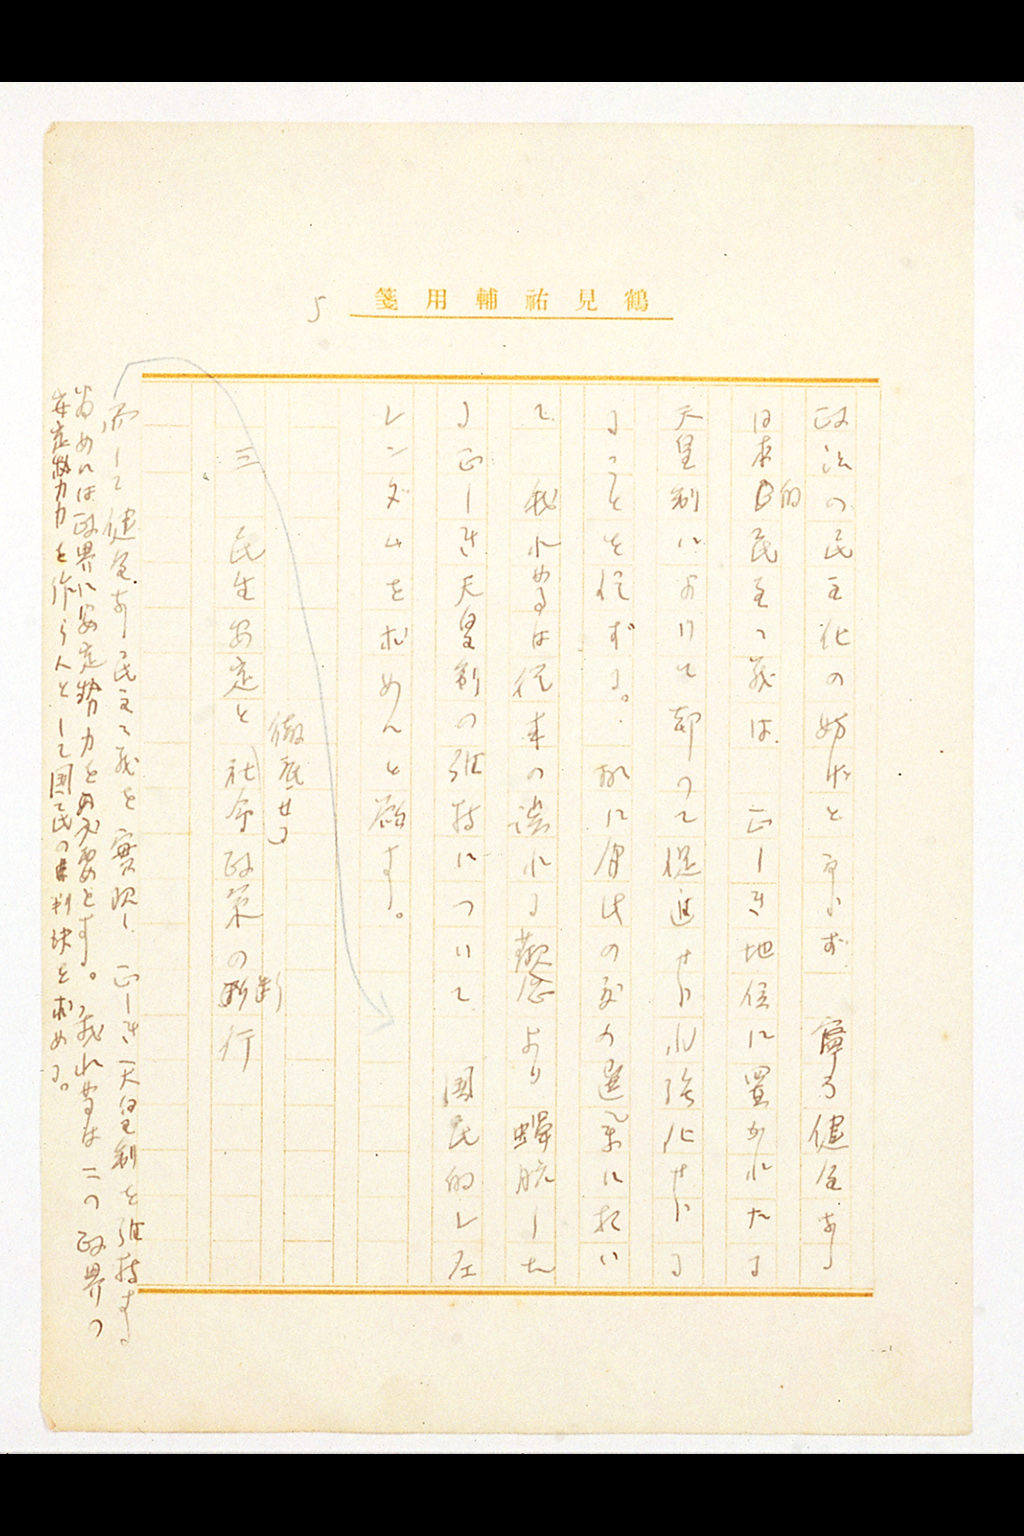 鶴見祐輔用箋
5
政治の民主化の妨げとならず 寧ろ健全なる
日本的民主々義は 正しき地位に置かれたる
天皇制によりて却つて促進せられ強化せらる
ることを信ずる。 故に の選挙に於い
て 我れ等は従来の誤れる概念より蝉脱した
る正しき天皇制の維持について 国民的レフェ
レンダムを求めんと願す。
徹底せる
三 民生安定と社会政策の断行
而して健全なる民主々義を實現し 正しき天皇制を維持する
為めには政界に安定勢力を必要とす。我れ等はこの政界の
安定勢力を作らんとして国民の判決を求める。